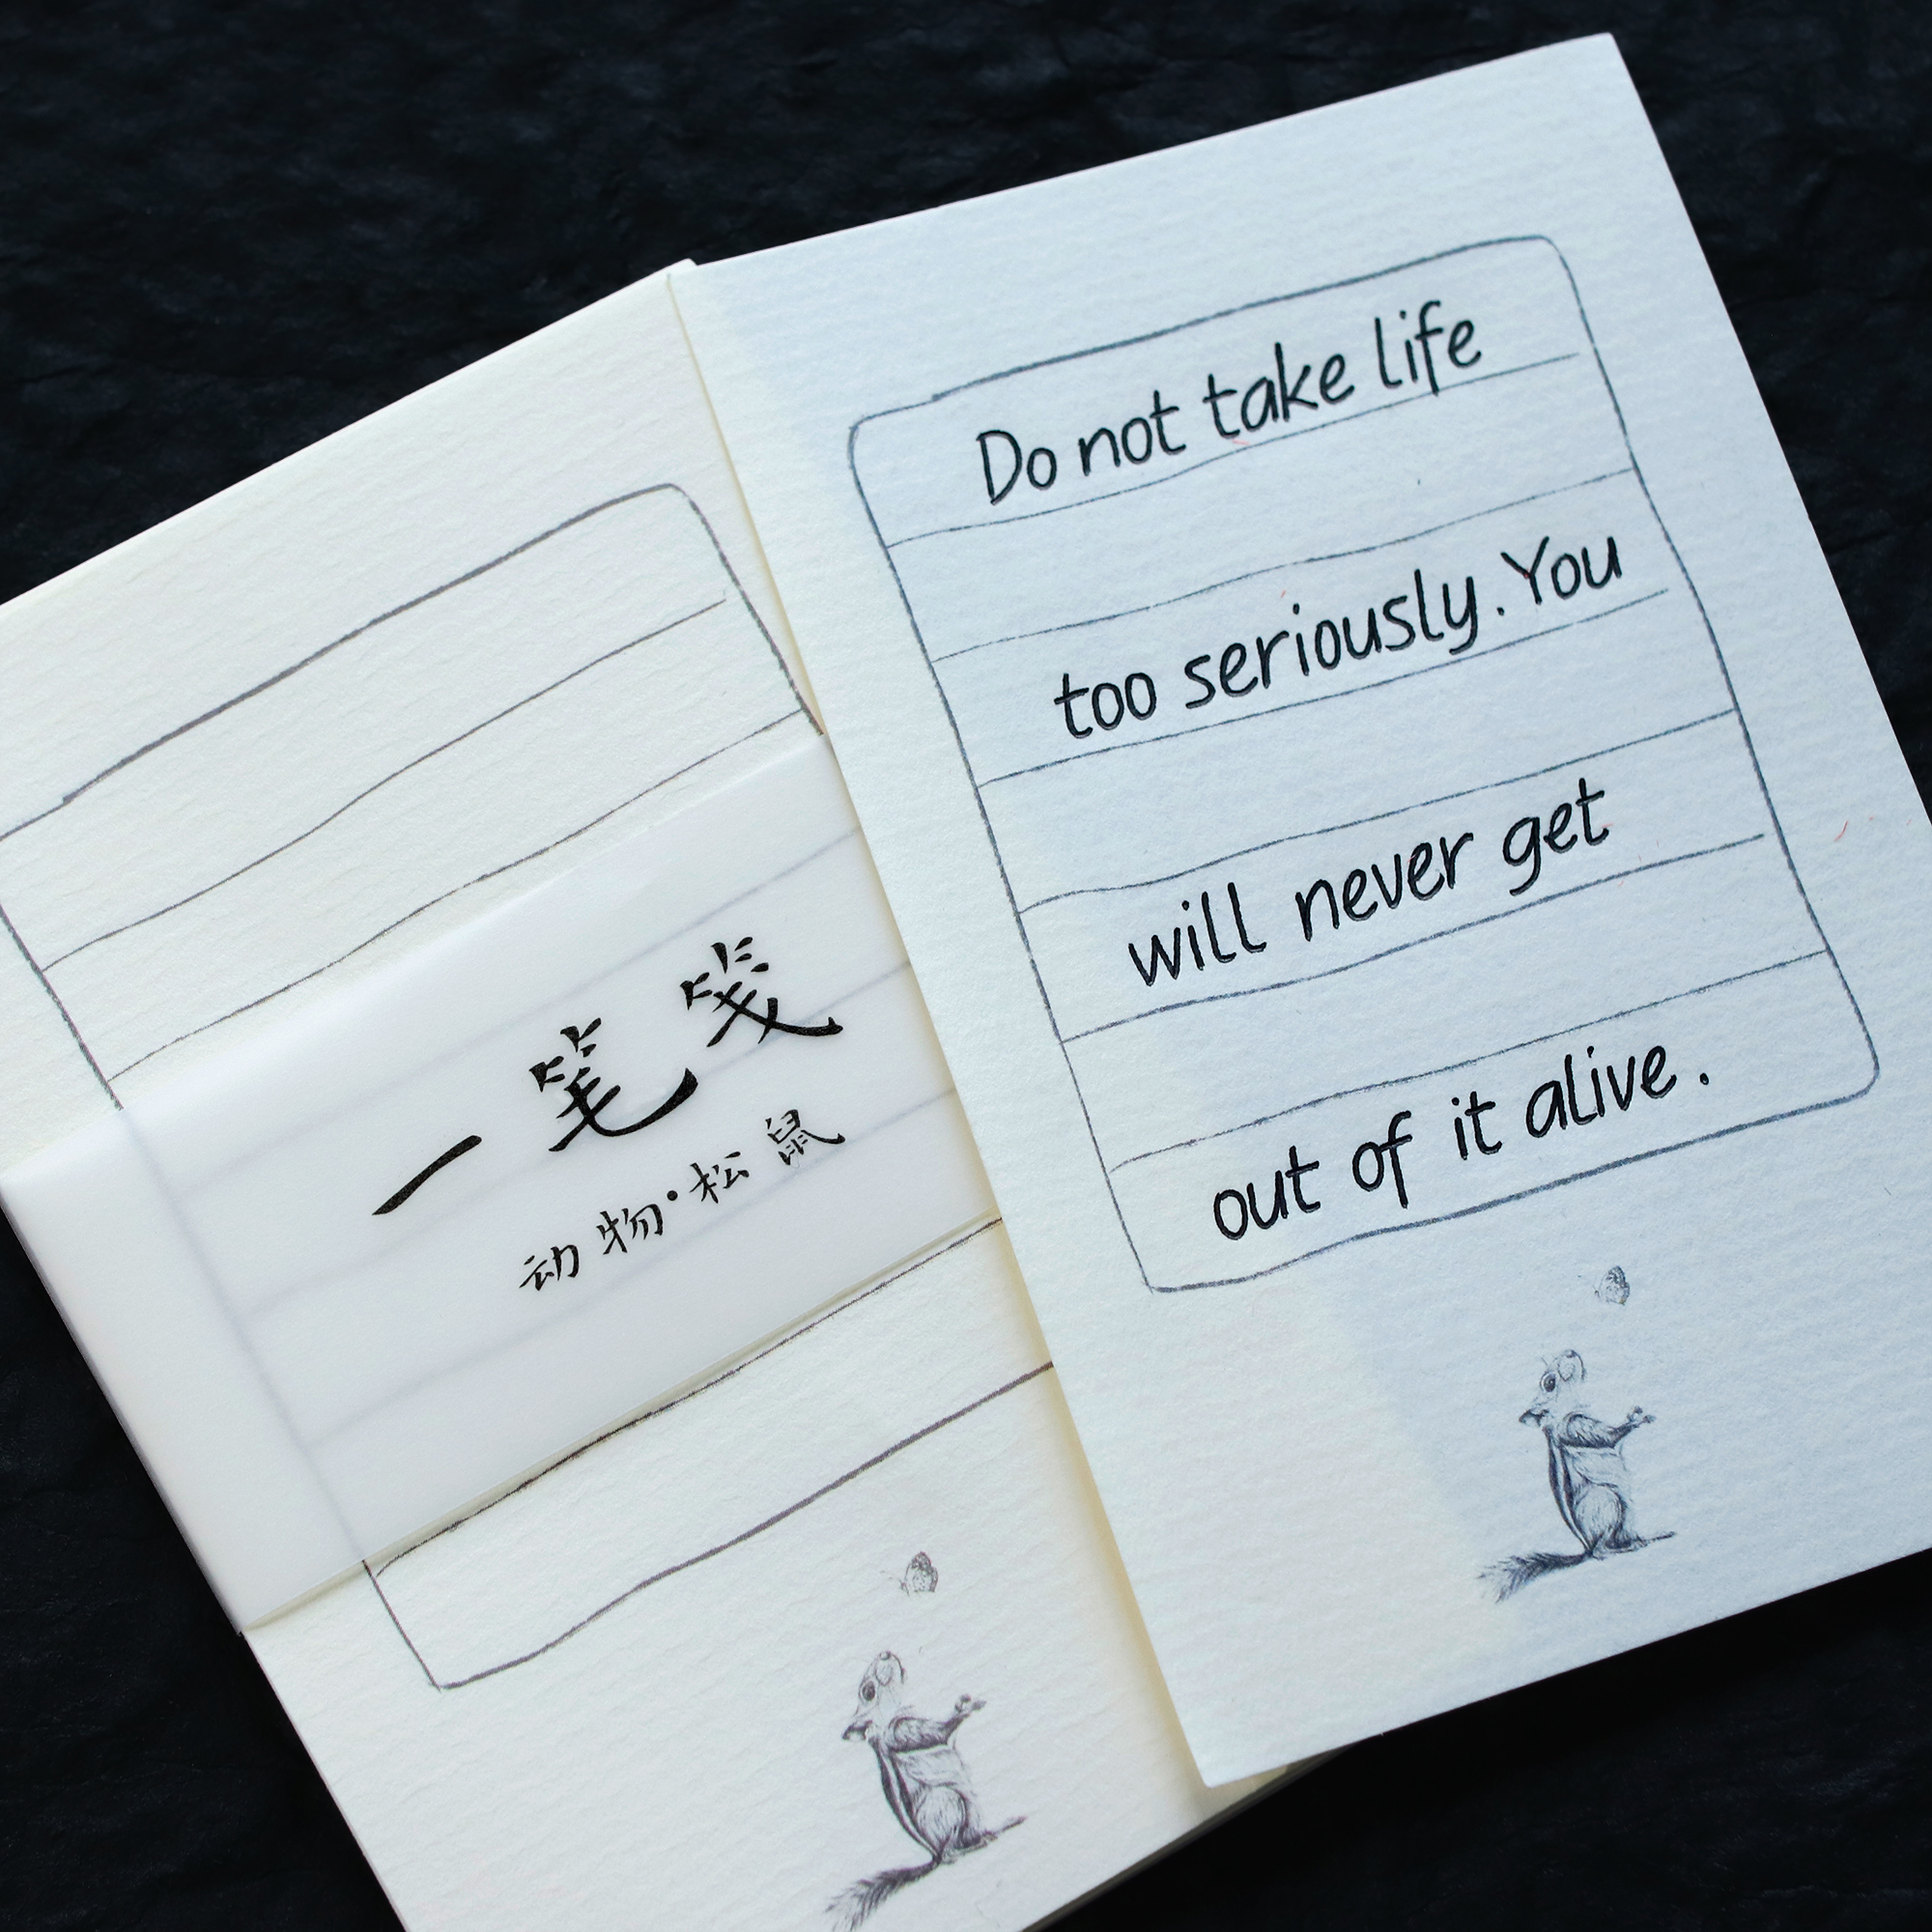 一笔笺
动物·松鼠
Do not take life
too seriously. You
will never get
out of it alive.